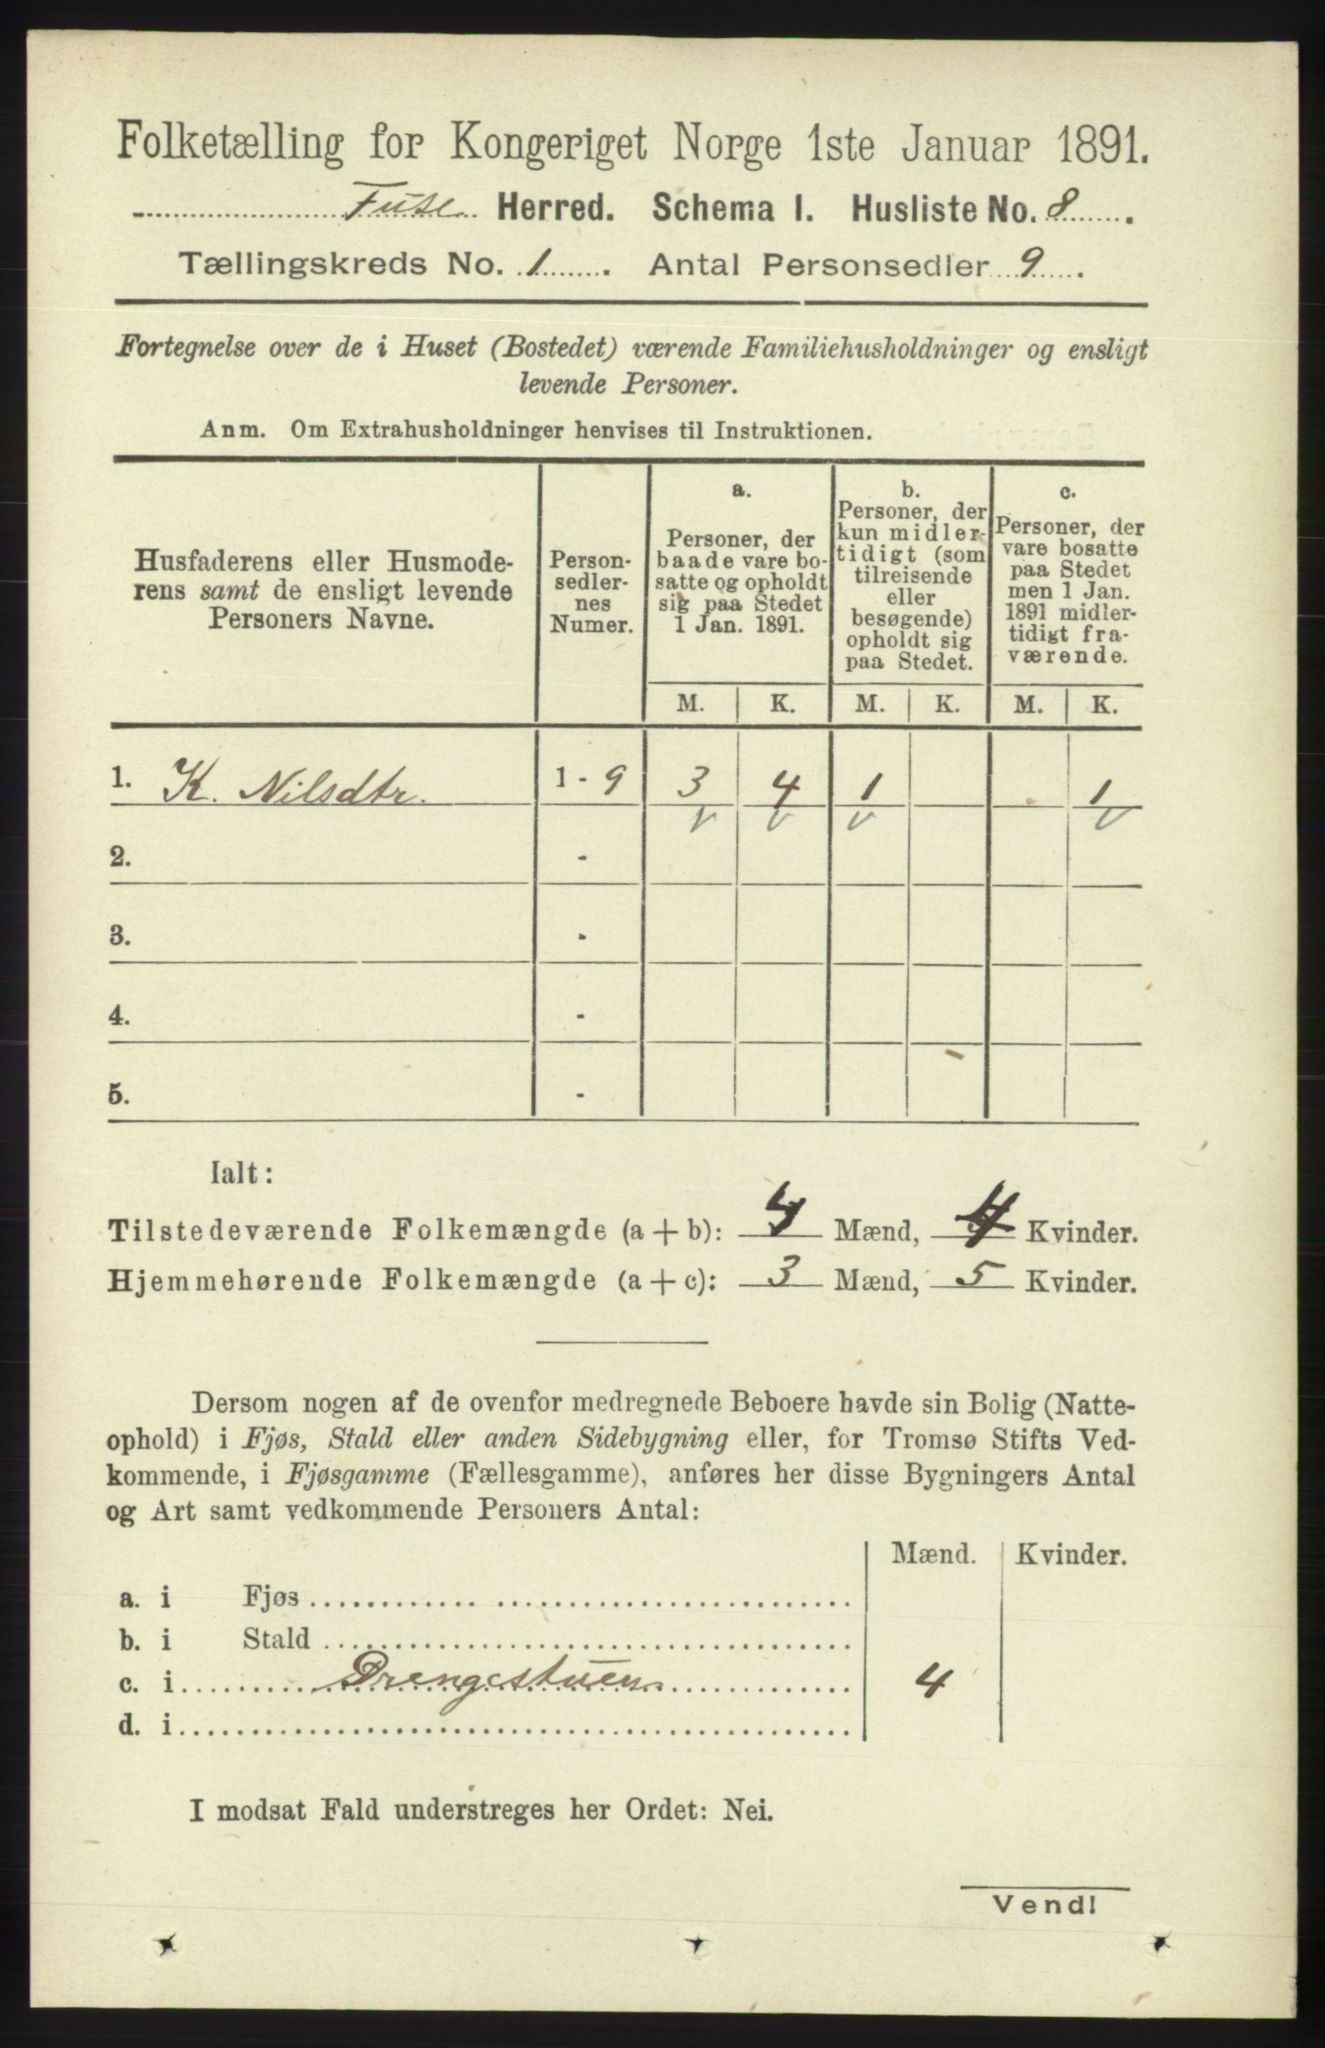 Folketælling for Kongeriget Norge 1ste Januar 1891.
Fuse Herred. Schema I. Husliste No. 8.
Tællingskreds No. 1. Antal Personsedler 9.
Fortegnelse over de i Huset (Bostedet) værende Familiehusholdninger og ensligt
levende Personer.
Anm. Om Extrahusholdninger henvises til Instruktionen.
Husfaderens eller Husmode-
rens samt de ensligt levende
Personers Navne.
Person-
sedler-
nes
Numer.
a.
Personer, der
baade vare bo-
satte og opholdt
sig paa Stedet
1 Jan. 1891.
b.
Personer, der
kun midler-
tidigt (som
tilreisende
eller
besøgende)
opholdt sig
paa Stedet.
c.
Personer, der
vare bosatte
paa Stedet
men 1 Jan.
1891 midler-
tidigt fra-
værende.
M. K. M. K. M. K.
1. K. Nilsdtr. 1 - 9 3 4 1 1
2. -
3. -
4. -
5. -
Ialt:
Tilstedeværende Folkemængde (a + b): 4 Mænd, 4 Kvinder.
Hjemmehørende Folkemængde (a + c): 3 Mænd, 5 Kvinder.
Dersom nogen af de ovenfor medregnede Beboere havde sin Bolig (Natte-
ophold) i Fjøs, Stald eller anden Sidebygning eller, for Tromsø Stifts Ved-
kommende, i Fjøsgamme (Fællesgamme), anføres her disse Bygningers Antal
og Art samt vedkommende Personers Antal:
Mænd. Kvinder.
a. i Fjøs
b. i Stald
c. i Drengestuen 4
d. i
I modsat Fald understreges her Ordet: Nei.
Vend!